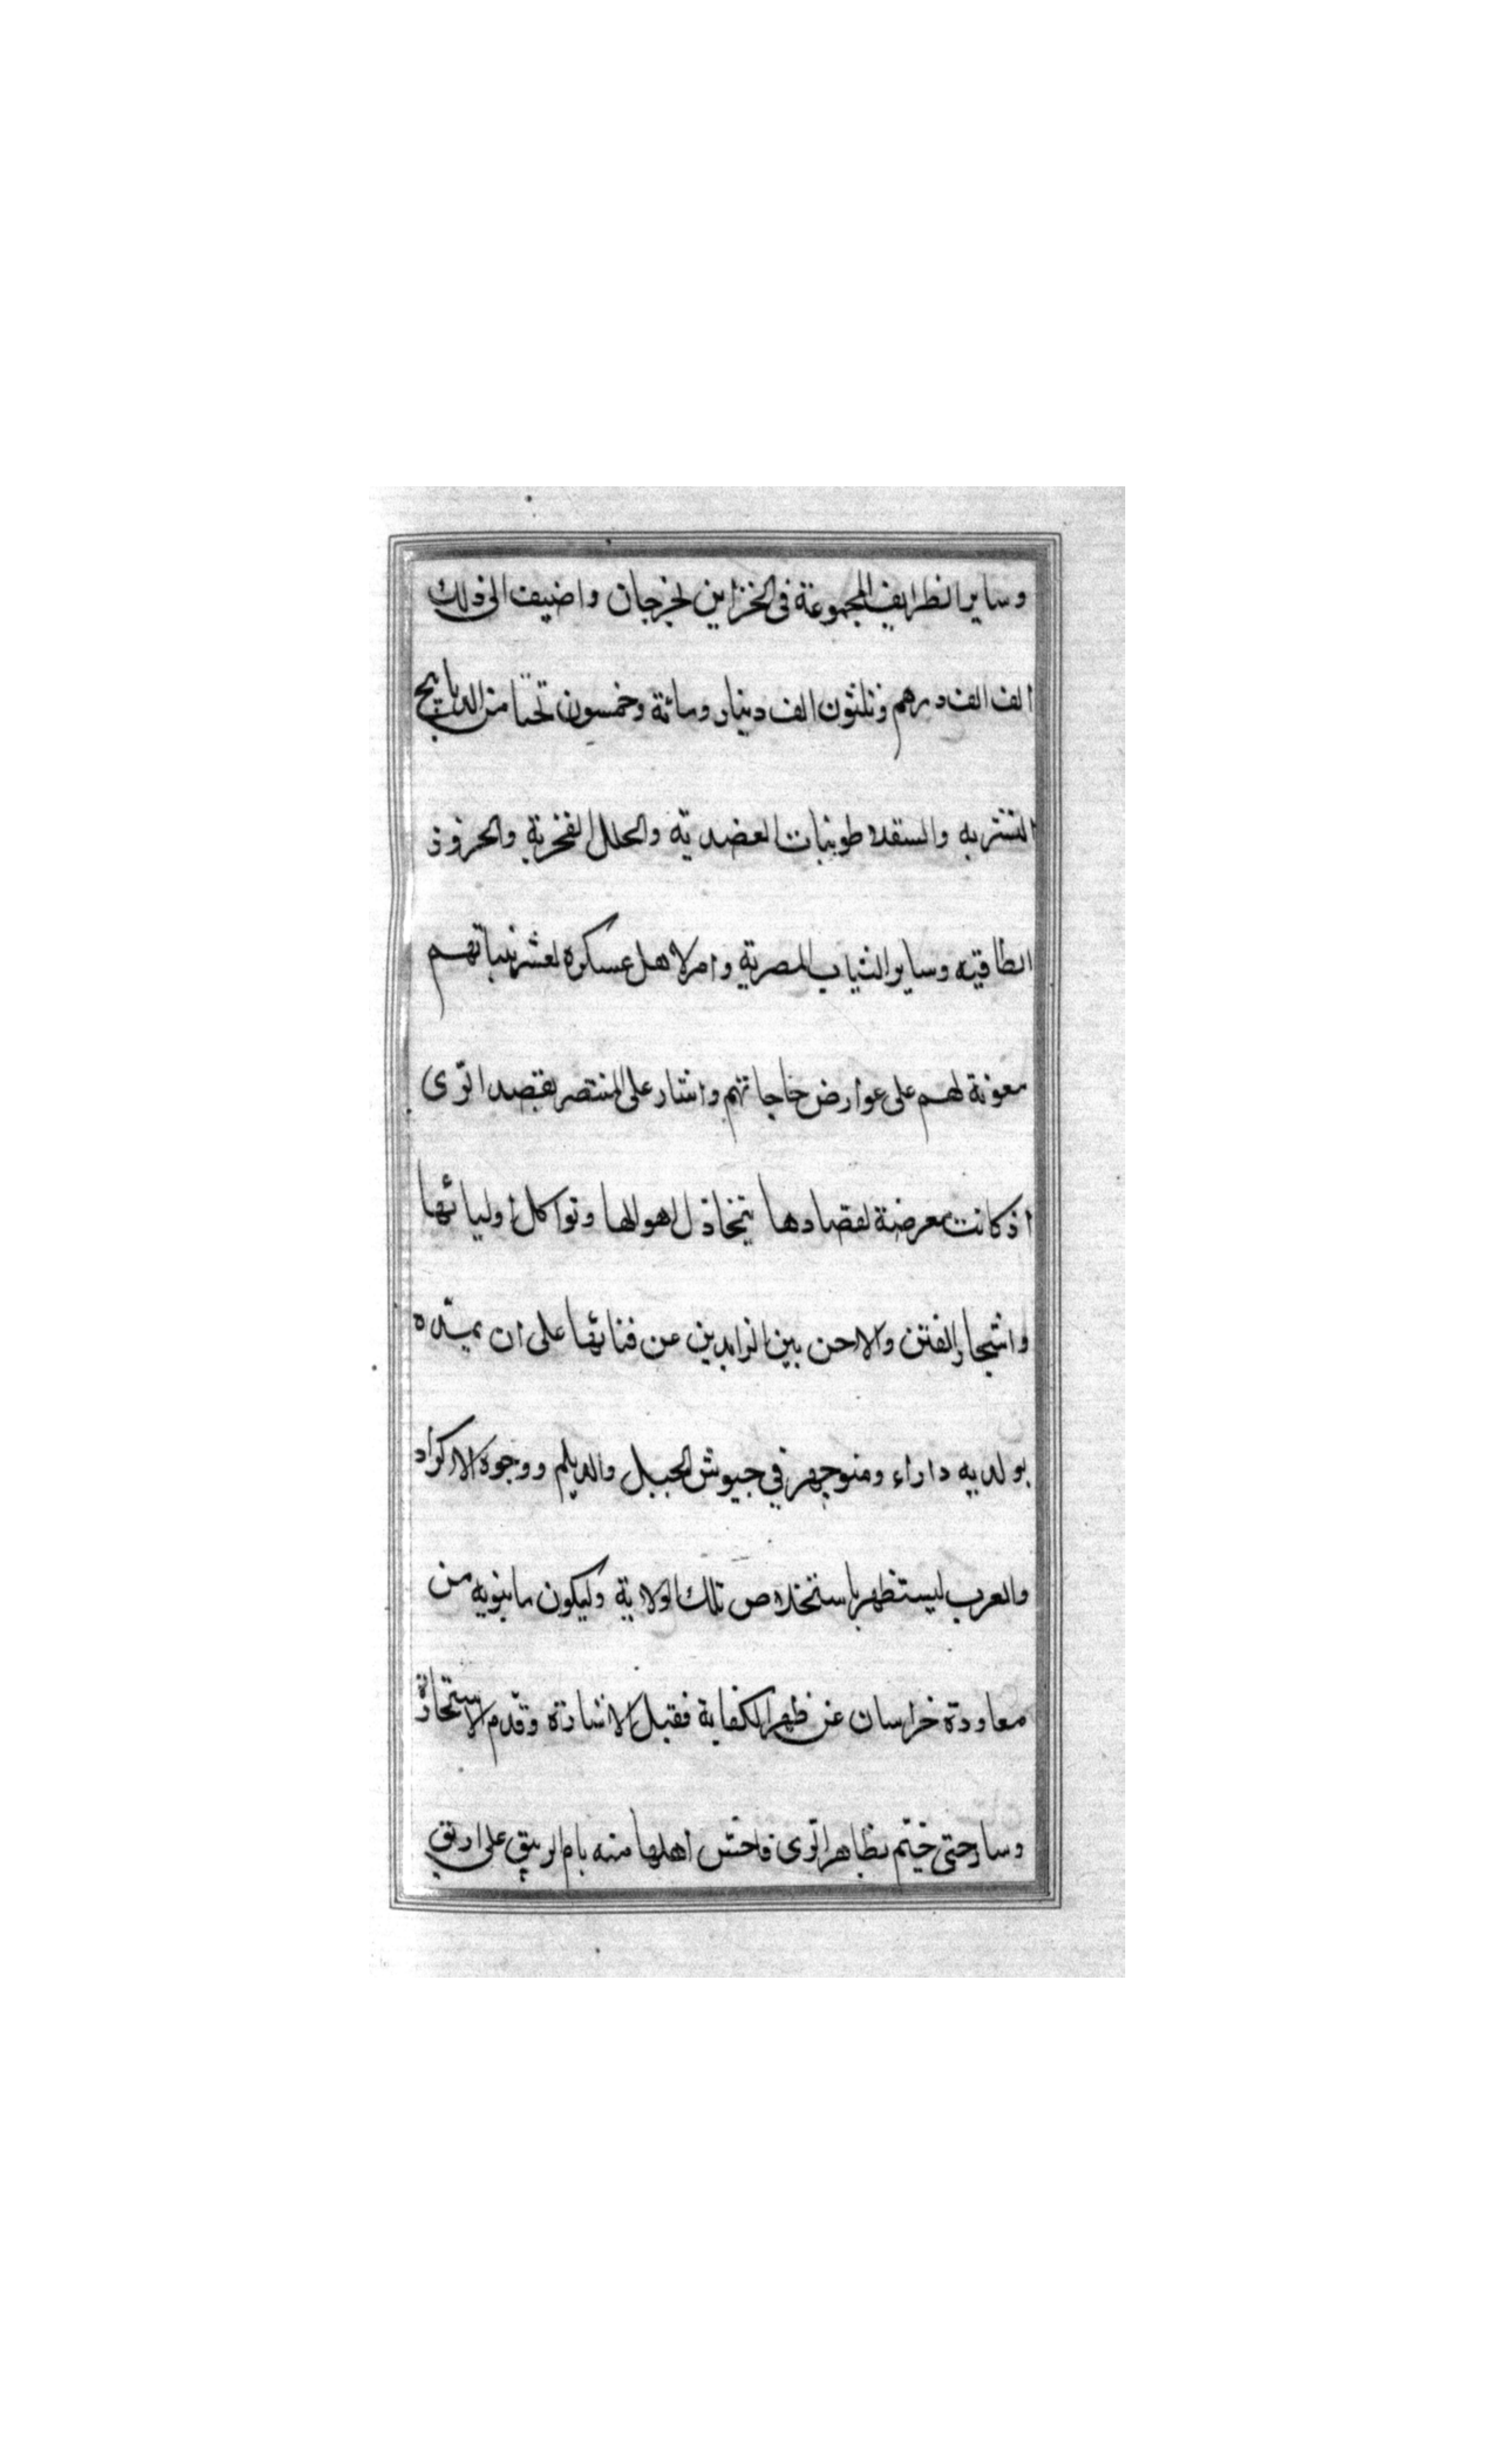 وساير الظرايف المجموعة في الخزاين لخرجان واضيف الى ذلك
الف الف درهم وثلثون الف دينار ومائة وخمسون تختا من الديابيج
التستريه والسقلاطونيات العضدية والحلل الفخرية والخزوز
الطاقيه وساير الثياب المصرية وامر لاهل عسكره
معونة لهم على عوارض حاجاتهم واشار على المنتصر بقصد الرّى
اذ كانت معرضة لقصادها بتخاذل اهوالها وتواكل اوليائها
واشجار الفتن والاحن بين الزايدين عن فنائها على ان يمدّه
بولديه داراء ومنوچهر في جيوش الجبل والديلم ووجوه الاكراد
والعرب ليستظهر باستخلاص تلك الولاية وليكون ما ينويه من
معاودة خراسان عن ظهر الكفاية فقبل الاشارة وقدّم الاستخارة
وسار حتى خيّم بظاهر الرّى فاحسّ اهلها منه بام الربيق على اريق